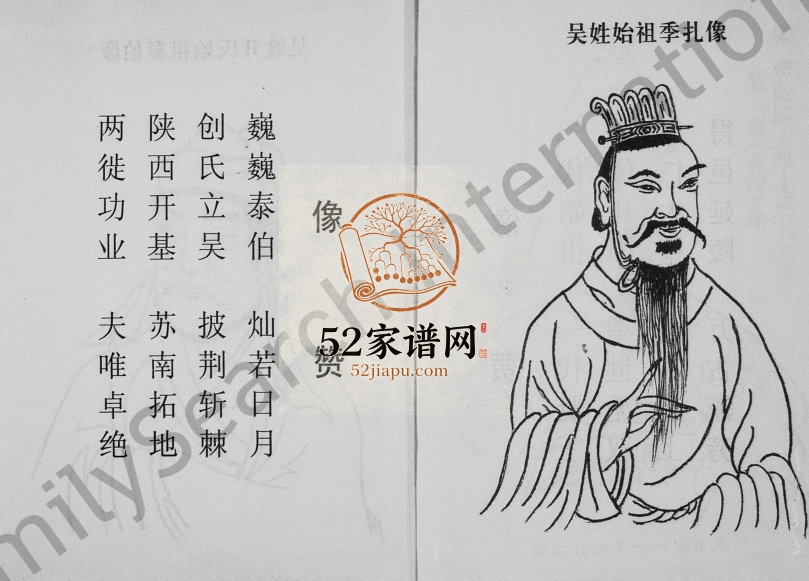 吴姓始祖季扎像
像赞
巍巍泰伯 灿若日月
创氏立吴 披荆斩棘
陕西开基 苏南拓地
两徙功业 夫唯卓绝
52家谱网
52jiapu.com
milySearch Internation